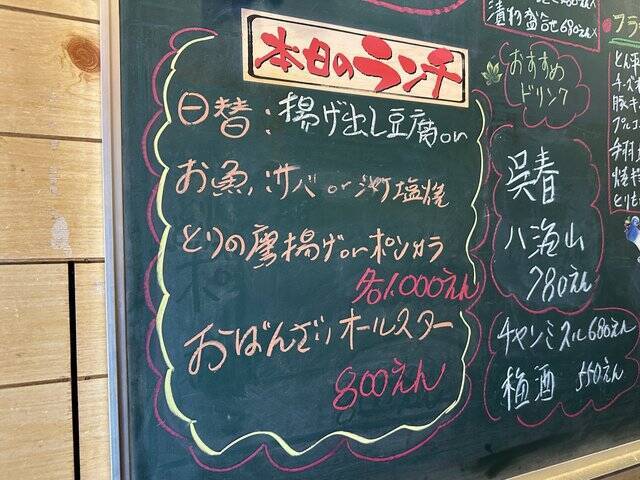 本日のランチ
日替:揚げ出し豆腐or
お魚:サバorシャケ塩焼
とりの唐揚げorポンカラ
各1.000えん
おばんざいオールスター
800えん
漬物盛合せ680えん
おすすめ
ドリンク
呉春
八海山
780えん
チャンミスル680えん
梅酒 550えん